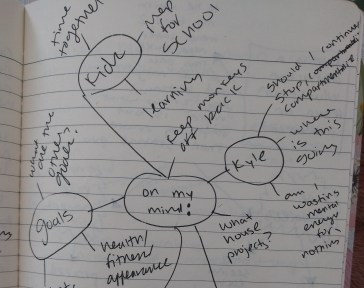 time
together
prep
for
SCHOOL
Kick
learning
keep monkeys
off back
should I continue
stop
where
is this
going
Kyle
am I
wasting
mental
energy
for
nothing
what
house
projects?
on my
mind:
health/
fitness/
appearance
goals
are the
goals?